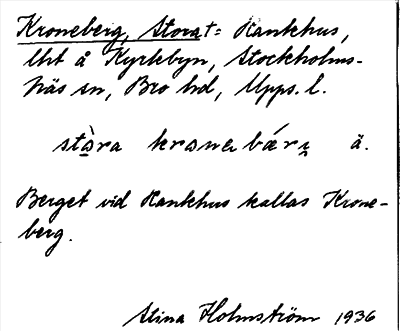 Kroneberg, Stora t: Kankhus,
lht å Kyrkbyn, Stockholms-
näs sn, Bro hd, Upps. l.
stàra kronebári ä.
Berget vid Kankhus kallas Krone-
berg.
Stina Holmström 1936